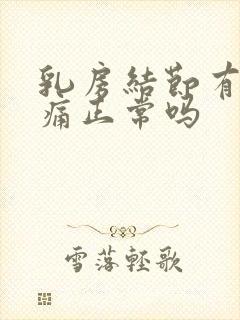 乳房结节有
痛正常吗
雪落轻歌